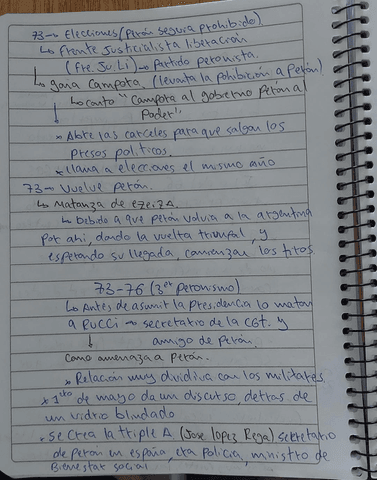 73→ Elecciones (Perón seguia prohibido)
↳ Frente Justicialista liberación
(Fre. Ju. Li) → Partido peronista.
↳ gana Campora. (levanta la prohibición a Perón)
↳ canto "Campora al gobierno Perón al
Poder"
* Abre las carceles para que salgan los
presos politicos.
* llama a elecciones el mismo año
73→ Vuelve Perón.
↳ Matanza de ezeiza.
↳ Debido a que perón volvia a la argentina
por ahi, dando la vuelta triunfal, y
esperando su llegada, comienzan los tiros.
73-76 (3er Peronismo)
↳ Antes de asumir la presidencia lo matan
a RUCCI → secretario de la CGT. y
amigo de Perón.
Como amenaza a Perón.
* Relación muy dividiva con los militares
* 1ro de mayo da un discurso, detras de
un vidrio blindado
* se crea la triple A. (Jose lopez Rega) secretario
de perón en españa, era policia, ministro de
Bienestar social